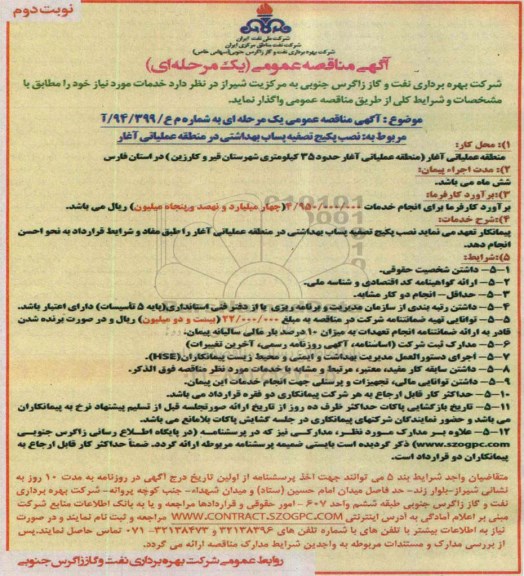 نوبت دوم
شرکت ملی نفت ایران
شرکت نفت مناطق مرکزی ایران
شرکت بهره برداری نفت و گاز زاگرس جنوبی (سهامی خاص)
آگهی مناقصه عمومی (یک مرحله‌ای)
شرکت بهره برداری نفت و گاز زاگرس جنوبی به مرکزیت شیراز در نظر دارد خدمات مورد نیاز خود را مطابق با
مشخصات و شرایط کلی از طریق مناقصه عمومی واگذار نماید.
موضوع : آگهی مناقصه عمومی یک مرحله ای به شماره م ع/۹۴/۳۹۹/آ
مربوط به: نصب پکیج تصفیه پساب بهداشتی در منطقه عملیاتی آغار
۱): محل کار:
منطقه عملیاتی آغار (منطقه عملیاتی آغار حدود ۳۵ کیلومتری شهرستان قیر و کارزین ) در استان فارس
۲): مدت اجراء پیمان:
شش ماه می باشد.
۳):برآورد کارفرما:
برآورد کارفرما برای انجام خدمات ۴/۹۵۰/۰۰۰/۰۰۰ (چهار میلیارد و نهصد و پنجاه میلیون) ریال می باشد.
۴):شرح خدمات:
پیمانکار تعهد می نماید نصب پکیج تصفیه پساب بهداشتی در منطقه عملیاتی آغار را طبق مفاد و شرایط قرارداد به نحو احسن
انجام دهد.
۵):شرایط:
۱-۵- داشتن شخصیت حقوقی.
۲-۵- ارائه گواهینامه کد اقتصادی و شناسه ملی.
۳-۵- حداقل- انجام دو کار مشابه.
۴-۵- داشتن رتبه بندی از سازمان مدیریت و برنامه ریزی یا از دفتر فنی استانداری(پایه ۵ تأسیسات) دارای اعتبار باشد.
۵-۵- توانایی تهیه ضمانتنامه شرکت در مناقصه به مبلغ ۲۲/۰۰۰/۰۰۰ (بیست و دو میلیون) ریال و در صورت برنده شدن
قادر به ارائه ضمانتنامه انجام تعهدات به میزان ۱۰ درصد بار مالی سالیانه پیمان.
۶-۵- مدارک ثبت شرکت (اساسنامه، آگهی روزنامه رسمی، آخرین تغییرات)
۷-۵- اجرای دستورالعمل مدیریت بهداشت و ایمنی و محیط زیست پیمانکاران(HSE).
۸-۵- داشتن سابقه کار مفید، معتبر، مرتبط و مشابه با خدمات مورد نظر مناقصه فوق الذکر.
۹-۵- داشتن توانایی مالی، تجهیزات و پرسنلی جهت انجام خدمات این پیمان.
۱۰-۵- حداکثر کار قابل ارجاع به هر شرکت پیمانکاری دو فقره قرارداد می باشد.
۱۱-۵- تاریخ بازگشایی پاکات حداکثر ظرف ده روز از تاریخ ارائه صورتجلسه قبل از تسلیم پیشنهاد نرخ به پیمانکاران
می باشد و حضور نمایندگان شرکتهای پیمانکاری در جلسه گشایش پاکات بلامانع می باشد.
۱۲-۵- علاوه بر مدارک مورد نظر، مدارکی نیز که در پرسشنامه (در پایگاه اطلاع رسانی زاگرس جنوبی
www.szogpc.com) ذکر گردیده است بایستی ضمیمه پرسشنامه مربوطه ارائه گردد. ضمناً حداکثر کار قابل ارجاع به
پیمانکاران دو قرارداد است.
متقاضیان واجد شرایط بند ۵ می توانند جهت اخذ پرسشنامه از اولین تاریخ درج آگهی در روزنامه به مدت ۱۰ روز به
نشانی شیراز-بلوار زند- حد فاصل میدان امام حسین (ستاد) و میدان شهداء- جنب کوچه پروانه- شرکت بهره برداری
نفت و گاز زاگرس جنوبی طبقه ششم واحد ۶۰۷- امور حقوقی و قراردادها مراجعه و یا به بانک اطلاعات منابع شرکت
مبنی بر اعلام آمادگی به آدرس اینترنتی WWW.CONTRACT.SZOGPC.COM مراجعه و ثبت نام نمایند و در صورت
نیاز به اطلاعات بیشتر با تلفن های با شماره تلفن های ۳۲۱۳۸۳۹۶ و ۳۲۱۳۸۴۷۳- ۰۷۱ تماس حاصل نمایند. پس
از بررسی مدارک و مستندات مربوطه به واجدین شرایط مدارک مناقصه ارائه می گردد.
روابط عمومی شرکت بهره برداری نفت و گاز زاگرس جنوبی